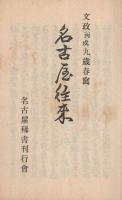 文政丙戌九歳春寫
名古屋往来
名古屋稀書刊行會